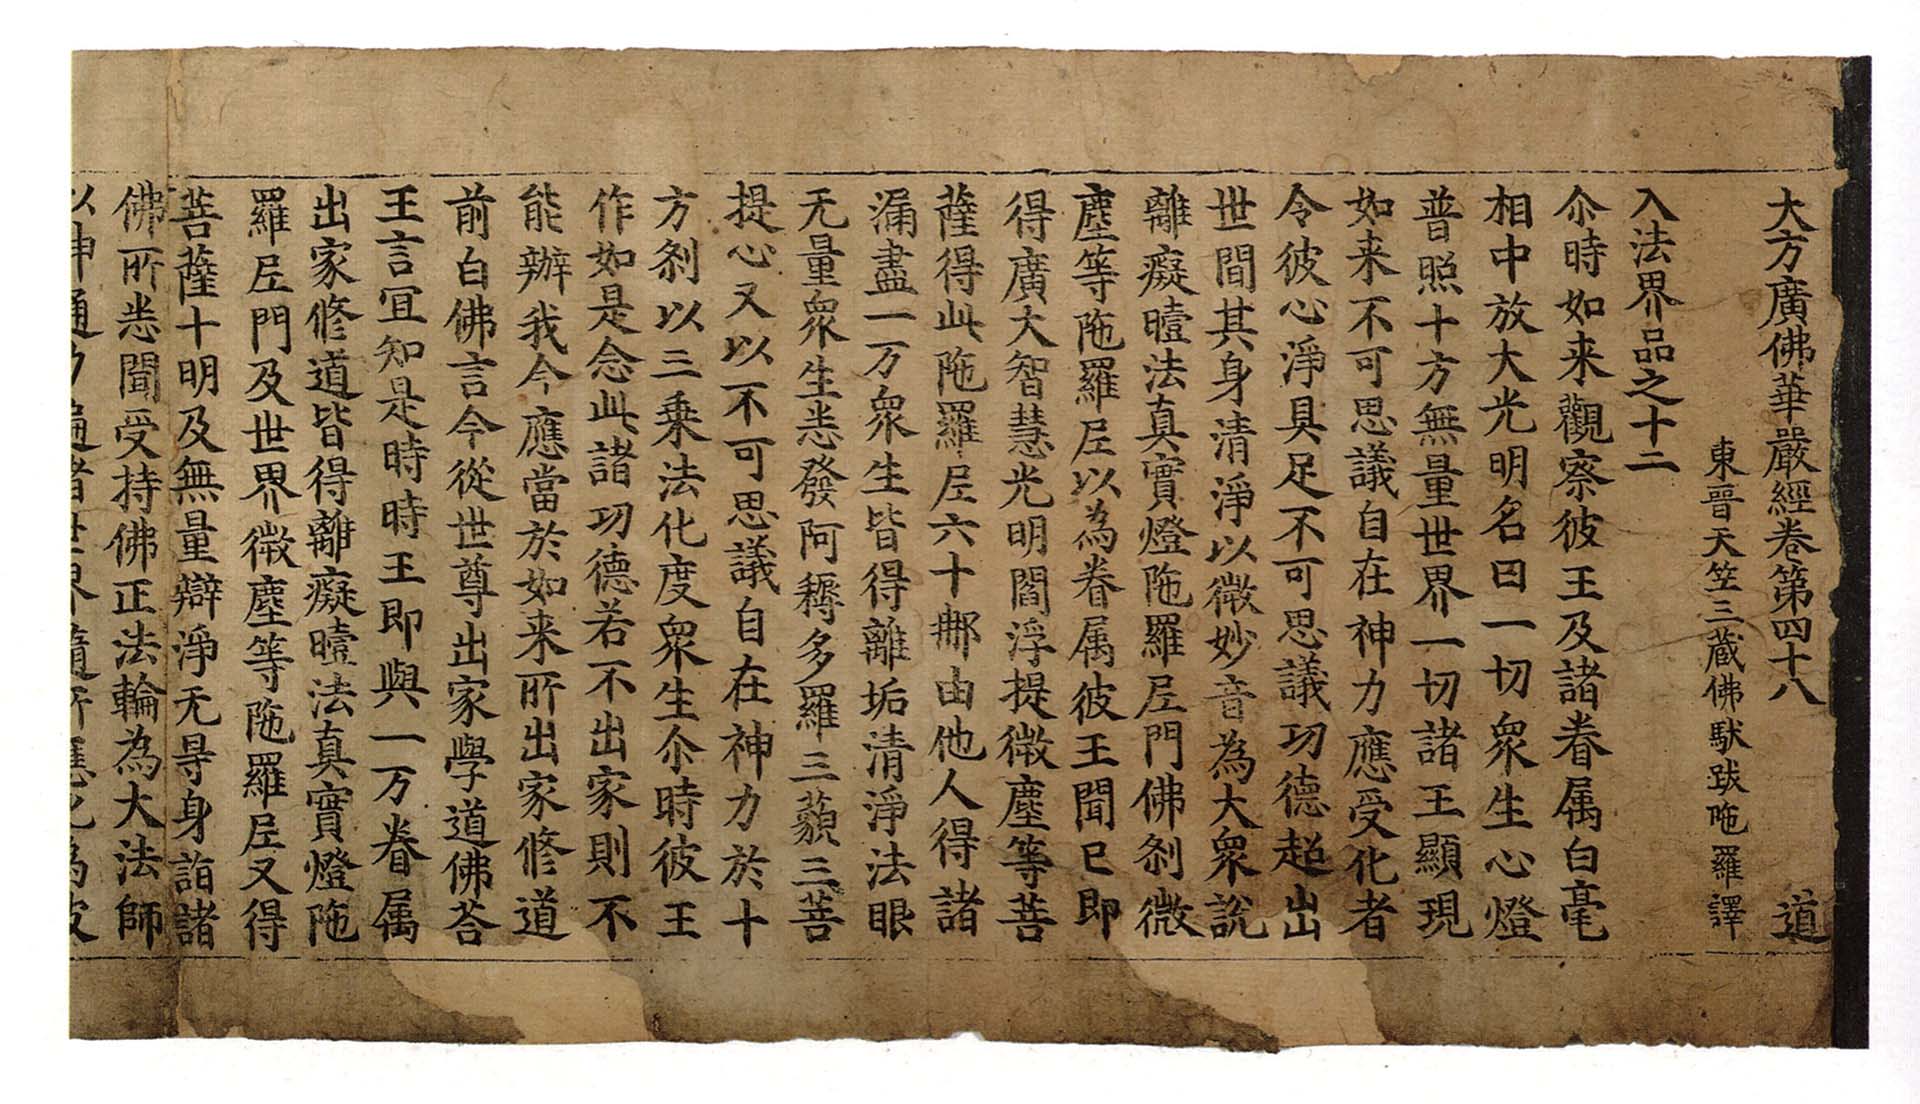 大方廣佛華嚴經卷第四十八 道
東晉天笠三藏佛馱跋陁羅譯
入法界品之十二
尒時如来觀察彼王及諸眷属白毫
相中放大光明名曰一切衆生心燈
普照十方無量世界一切諸王顯現
如来不可思議自在神力應受化者
令彼心淨具足不可思議功德超出
世間其身清淨以微妙音為大衆說
離癡曀法真實燈陁羅尼門佛刹微
塵等陁羅尼以為眷属彼王聞已即
得廣大智慧光明閻浮提微塵等菩
薩得此陁羅尼六十那由他人得諸
漏盡一万衆生皆得離垢清淨法眼
无量衆生悉發阿耨多羅三藐三菩
提心又以不可思議自在神力於十
方刹以三乗法化度衆生尒時彼王
作如是念此諸功德若不出家則不
能辦我今應當於如来所出家修道
前白佛言今從世尊出家學道佛荅
王言冝知是時時王即與一万眷属
出家修道皆得離癡曀法真實燈陁
羅尼門及世界微塵等陁羅尼又得
菩薩十明及無量辯淨无㝵身詣諸
佛所悉聞受持佛正法輪為大法師
以神通力遍諸世界隨所應化為彼